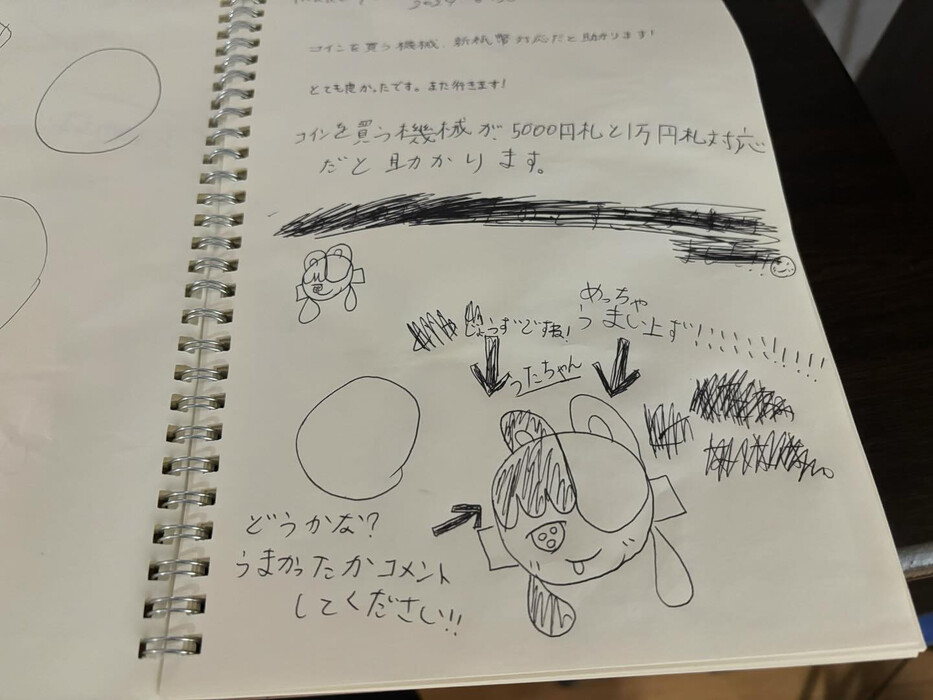 コインを買う機械、新紙幣対応だと助かります!
とても良かったです。また行きます!
コインを買う機械が5000円札と1万円札対応
だと助かります。
じょうずですね!
めっちゃ
うまし上ず!!!!!!!!!!!
うたちゃん
どうかな?
うまかったかコメント
してください!!